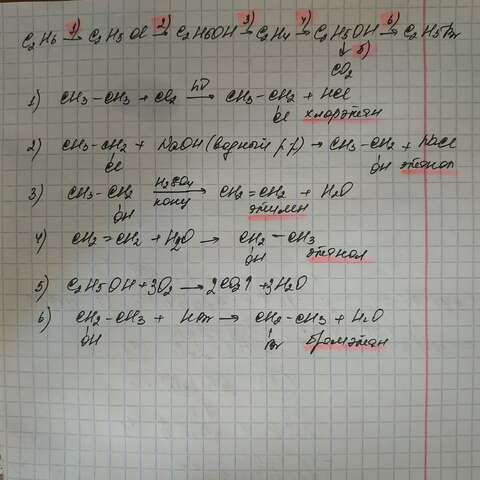 1) 2) 3) 4) 6)
C2H6 → C2H5Cl → C2H5OH → C2H4 → C2H5OH → C2H5Br
↓ 5)
CO2
1) CH3-CH3 + Cl2 hν→ CH3-CH2 + HCl
Cl хлорэтан
2) CH3-CH2 + NaOH (водный р-р) → CH3-CH2 + NaCl
Cl OH этанол
3) CH3-CH2 H2SO4 конц → CH2=CH2 + H2O
OH этилен
4) CH2=CH2 + H2O → CH2-CH3
OH этанол
5) C2H5OH + 3O2 → 2CO2↑ + 3H2O
6) CH2-CH3 + HBr → CH2-CH3 + H2O
OH Br бромэтан